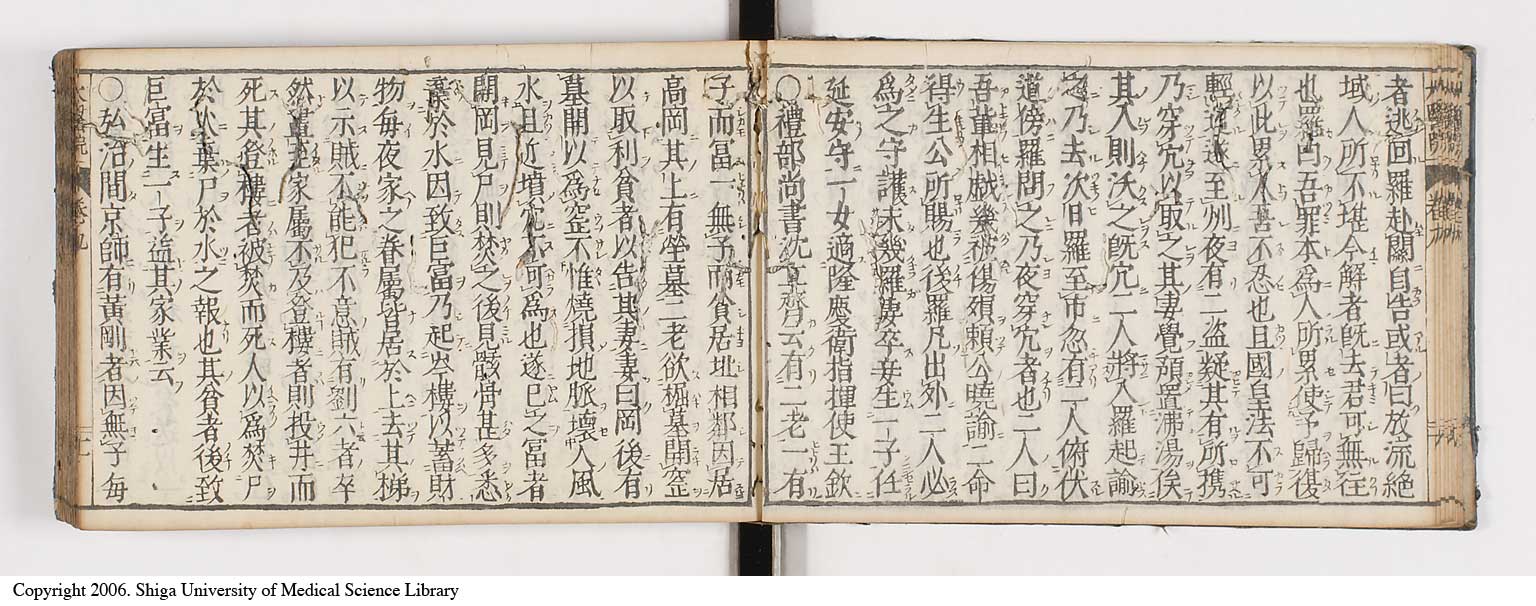 者逃回羅赴闕自告或者曰放流絶
域人所不堪今解者既去君可無徃
也羅曰吾罪本爲人所累使予歸復
以此累人不忍也且國皇法不可
輕逆遂至州夜有二盗疑其有所携
乃穿穴以取之其妻覺預置沸湯俟
其入則沃之既穴二人將入羅起諭
之乃去次日羅至市忽有二人俯伏
道傍羅問之乃夜穿穴者也二人曰
吾輩相戲幾被傷殞頼公曉諭二命
得生公所賜也後羅凡出外二人必
爲之守護未幾羅妻卒妾生一子任
延安守一女適隆慶衛指揮使王欽
○禮部尚書沈立齋云有二老一有
子而冨一無子而貧居址相鄰因居
高岡其上有坐墓二老欲掘墓開窑
以取利貧者以告其妻妻曰岡後有
墓開以爲窑不惟燒損地脉壞人風
水且近墳完不可爲也遂已之冨者
開岡見尸則焚之後見骸骨甚多悉
棄於水因致巨富乃起岑樓以蓄財
物毎夜家之眷屬皆居於上去其梯
以示賊不能犯不意賊有劉六者卒
然 家屬不及登樓者則投井而
死其登樓者被焚而死人以爲焚尸
於火棄尸於水之報也其貧者後致
巨富生一子益其家業云
○弘治間京師有黄剛者因無子毎
Copyright 2006. Shiga University of Medical Science Library